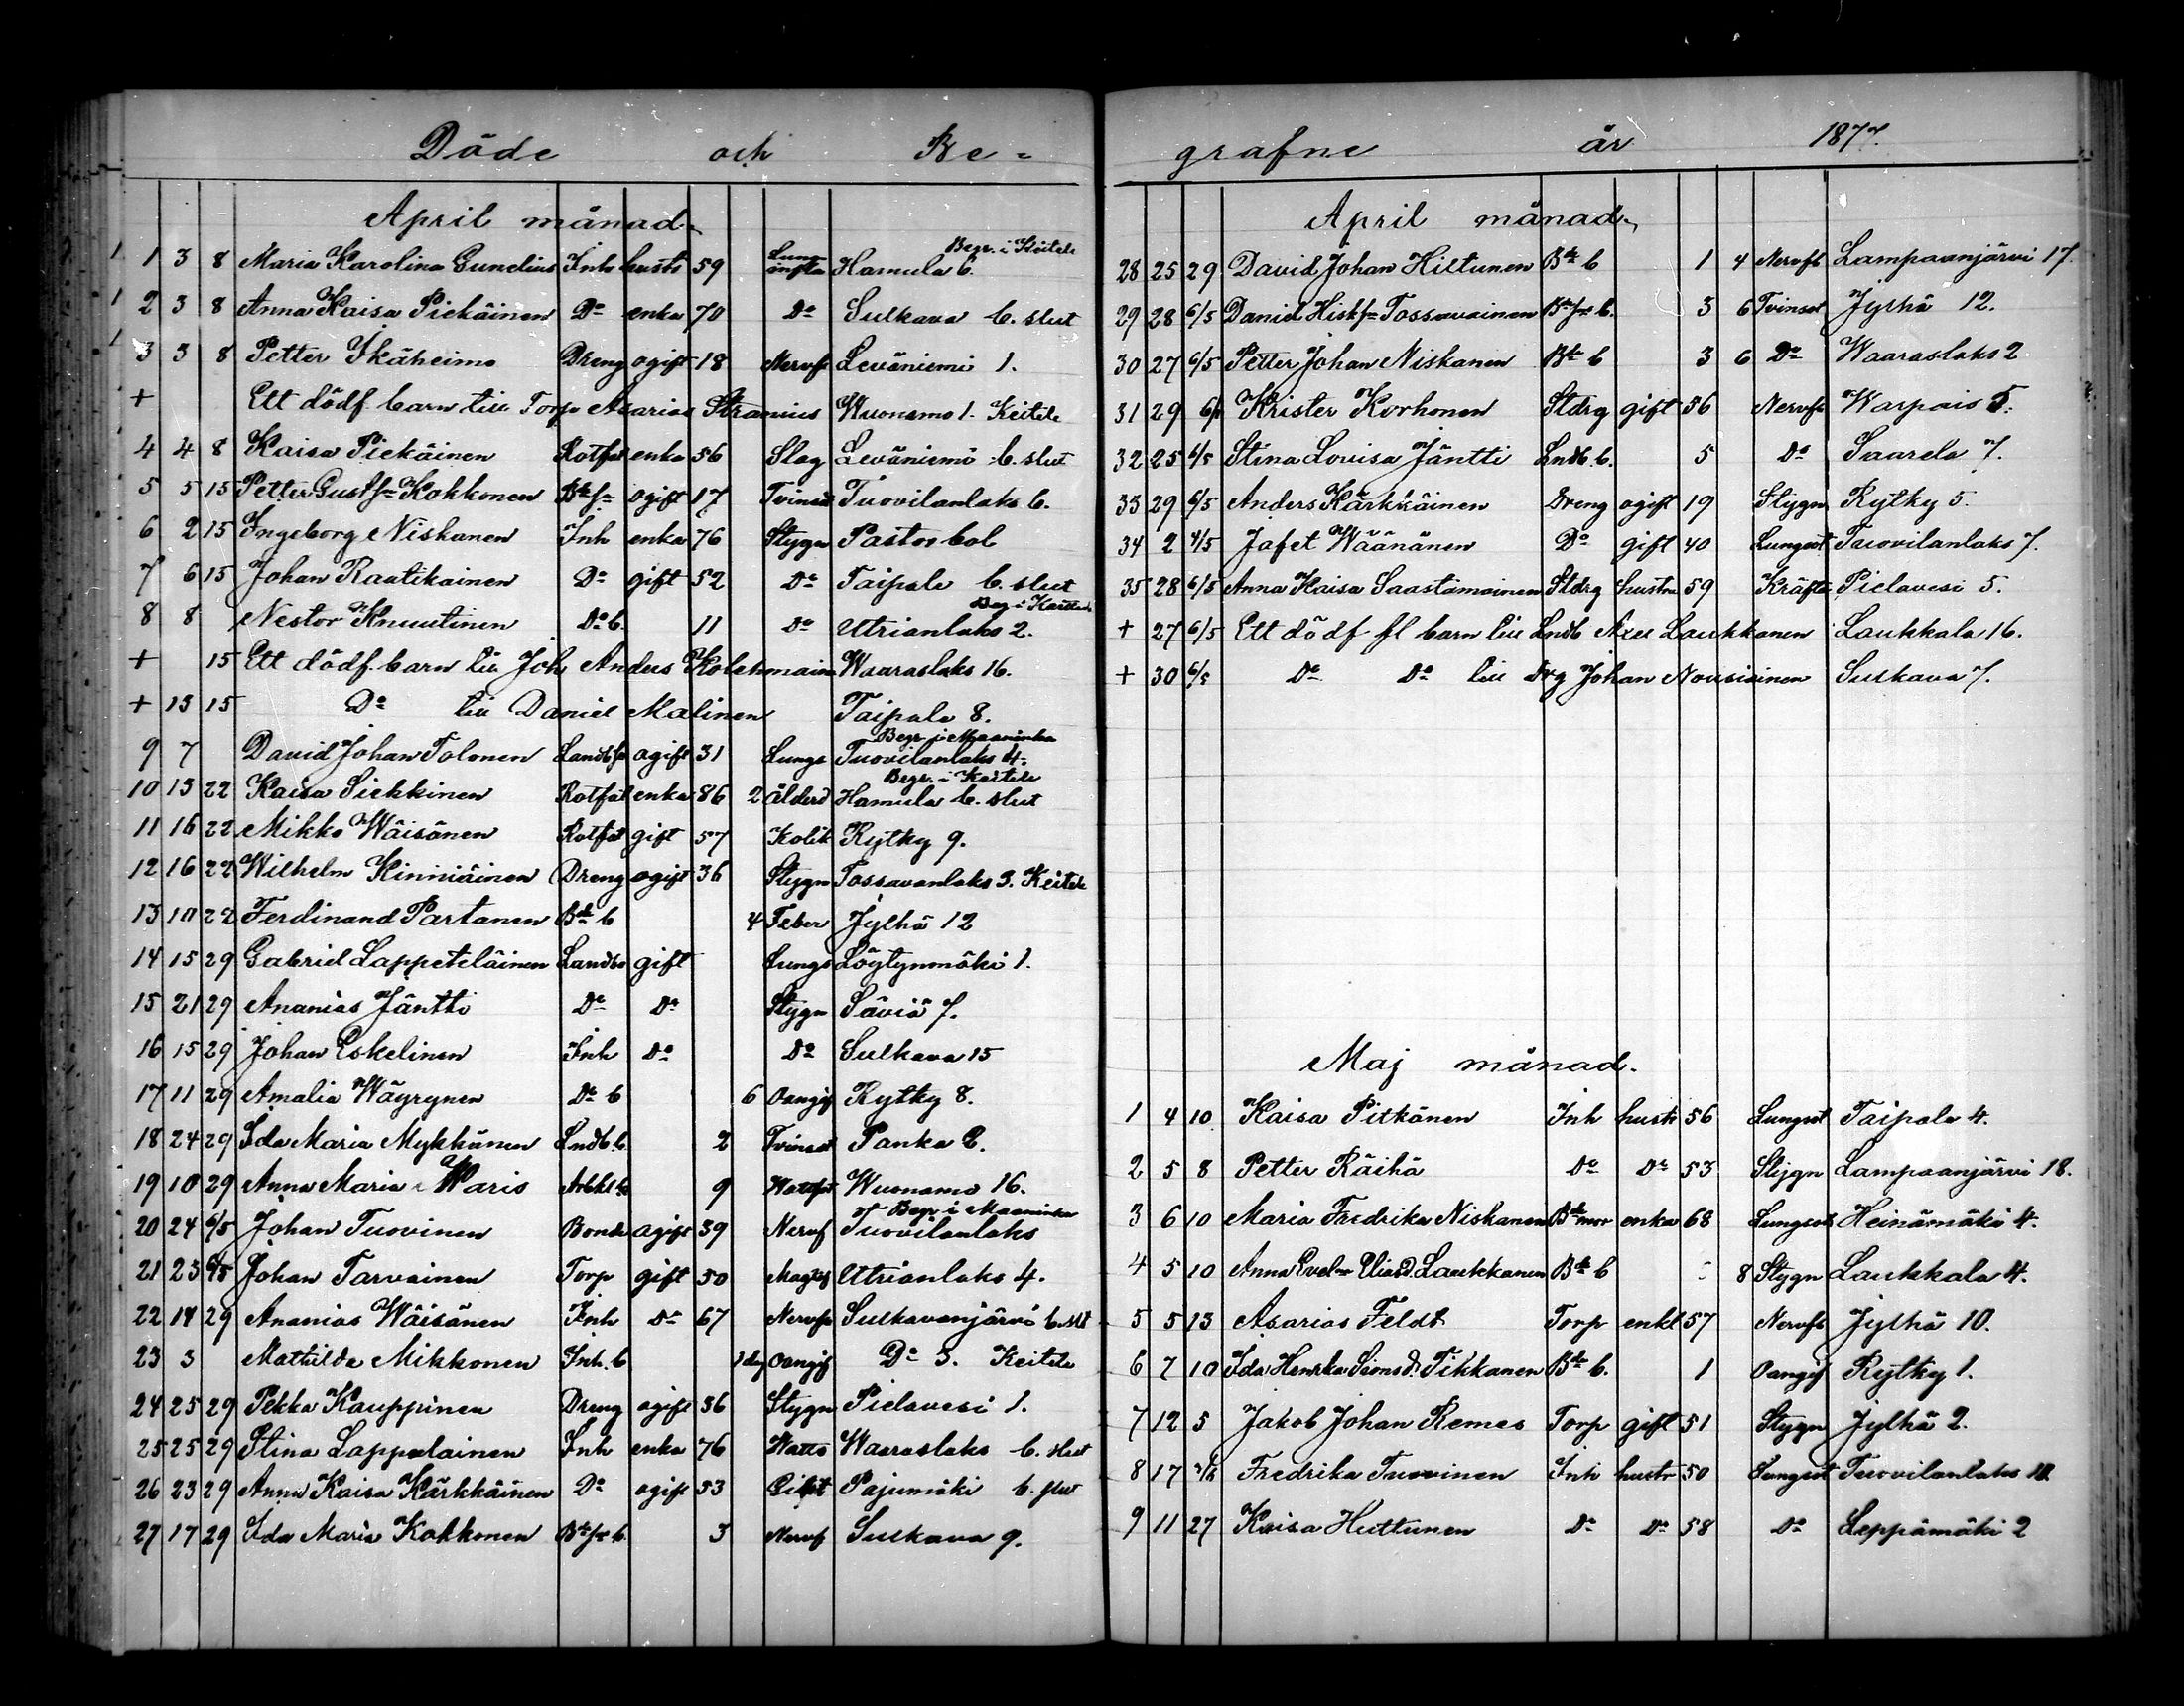 Döde och Be-
April månad.
1 1 3 8 Maria Karolina Gunelius Inh hustr 59 Lung infla Hamula 6. Begr. i Keitele
1 2 3 8 Anna Kaisa Piekäinen Do enka 70 Do Sulkava b. slut
1 3 3 8 Petter Ikäheimo Dreng ogift 18 Nervf Leväniemi 1.
+ Ett dödf. barn till Torp Asarias Stranius Wuonamo 1. Keitele
4 4 8 Kaisa Piekäinen Rotfat enka 56 Slag Leväniemi b. slut
5 5 15 Petter Gustfsn Kokkonen Bdesn ogift 17 Tvinsot Tuovilanlaks 6.
6 2 15 Ingeborg Niskanen Inh enka 76 Stygn Pastorbol
7 6 15 Johan Rautikainen Do gift 52 Do Taipale b. slut
8 8 Nestor Knuutinen Do b. 11 Do Utrianlaks 2. Begr i Karttula
+ 15 Ett dödf. barn till Joh Anders Kolehmain Waaraslaks 16.
+ 13 15 Do till Daniel Malinen Taipale 8.
9 7 David Johan Tolonen Landbsn ogift 31 Lungs Tuovilanlaks 4. Begr. i Maaninka
10 13 22 Kaisa Siekkinen Rotfat enka 86 2 ålderd Hamula b. slut Begr. i Keitele
11 16 22 Mikko Wäisänen Rotfat gift 57 Kolik Rytky 9.
12 16 22 Wilhelm Kinniäinen Dreng ogift 36 Stygn Tossavanlaks 3. Keitele
13 10 22 Ferdinand Partanen Bde b 4 Feber Jylhä 12
14 15 29 Gabriel Lappeteläinen Landbo gift Lungs Löytynmäki 1.
15 21 29 Ananias Jäntti Do Do Stygn Säviä 7.
16 15 29 Johan Eskelinen Inh Do Do Sulkava 15
17 11 29 Amalia Wäyrynen Do b 6 Oangif Rytky 8.
18 24 29 Ida Maria Mykkänen Lndb b. 2 Tvinsot Panka 2.
19 10 29 Anna Maria Waris 9 Wattsot Wuonamo 16.
20 24 6/5 Johan Tuovinen Bonde ogift 39 Nervf Tuovilanlaks Begr i Maaninka
21 23 6/5 Johan Tarvainen Torp gift 50 Utrianlaks 4.
22 14 29 Ananias Wäisänen Inh Do 67 Nervfb Sulkavanjärvi b. slt
23 3 Mathilda Mikkonen Inh. b 1 dg Oangif Do 3. Keitele
24 25 29 Pekka Kauppinen Dreng ogift 36 Stygn Pielavesi 1.
25 25 29 Stina Lappalainen Inh enka 76 Watts Waaraslaks b. slut
26 23 29 Anna Kaisa Kärkkäinen Do ogift 53 Pajumäki b. slut
27 17 29 Ida Maria Kokkonen Bdesn b. 3 Nervf Sulkava 9.
grafne år 1877.
April månad.
28 25 29 David Johan Hiltunen Bde b 1 4 Nervfb Lampaanjärvi 17.
29 28 6/5 Daniel Hiskfsn Tossavainen Bdesn b. 3 6 Tvinsot Jylhä 12.
30 27 6/5 Petter Johan Niskanen Bde b 3 6 Do Waaraslaks 2
31 29 6/5 Krister Korhonen Stdrg gift 56 Nervfb Warpais 5.
32 25 6/5 Stina Lovisa Jäntti Lndb. b. 5 Do Saarela 7.
33 29 6/5 Anders Kärkkäinen Dreng ogift 19 Stygn Rytky 5.
34 2 4/5 Jafet Wäänänen Do gift 40 Lungsot Tuovilanlaks 7.
35 28 6/5 Anna Kaisa Saastamoinen Stdrg hustru 59 Kräfta Pielavesi 5.
+ 27 6/5 Ett dödf fl barn till Lndb Axel Laukkanen Laukkala 16.
+ 30 6/5 Do Do till Drg Johan Nousiainen Sulkava 7.
Maj månad.
1 4 10 Kaisa Pitkänen Inh hustr 56 Lungsot Taipale 4.
2 5 8 Petter Räihä Do Do 53 Stygn Lampaanjärvi 18.
3 6 10 Maria Fredrika Niskanen Bdemor enka 68 Lungsot Heinämäki 4.
4 5 10 Anna Evel-a Eliasd. Laukkanen Bde b 8 Stygn Laukkala 4.
5 5 13 Asarias Feldt Torp enkl 57 Nervfb Jylhä 10.
6 7 10 Ida Henrika Simsd. Tikkanen Bde b. 1 Oangif Rytky 1.
7 12 5 Jakob Johan Remes Torp gift 51 Stygn Jylhä 2.
8 17 Fredrika Tuovinen Inh hustr 50 Lungsot Tuovilanlaks
9 11 27 Kaisa Huttunen Do Do 58 Do Leppämäki 2